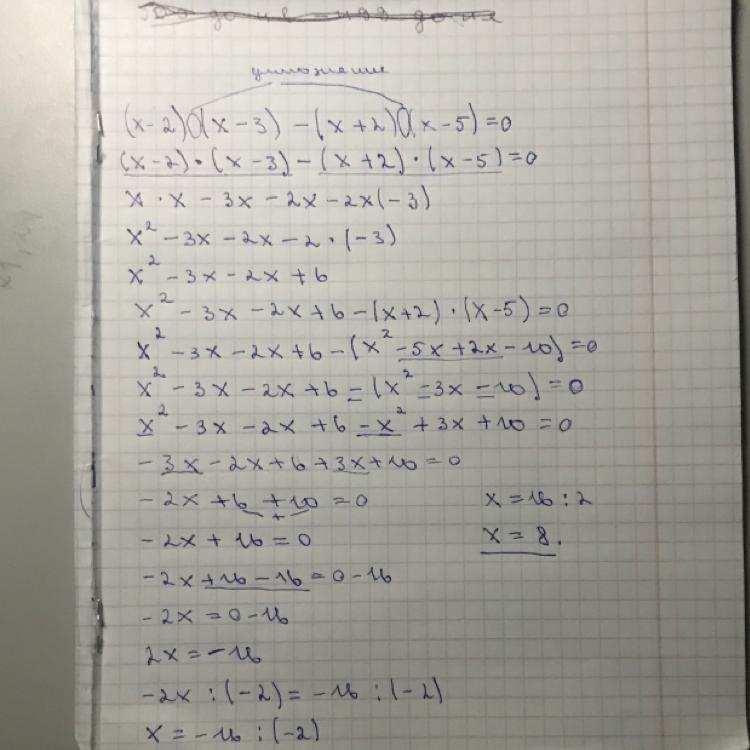 умножение
(x-2)()(x-3) - (x+2)()(x-5)=0
(x-2)·(x-3) - (x+2)·(x-5)=0
x·x - 3x - 2x - 2x(-3)
x² - 3x - 2x - 2·(-3)
x² - 3x - 2x + 6
x² - 3x - 2x + 6 - (x+2)·(x-5) = 0
x² - 3x - 2x + 6 - (x² - 5x + 2x - 10) = 0
x² - 3x - 2x + 6 - (x² - 3x - 10) = 0
x² - 3x - 2x + 6 - x² + 3x + 10 = 0
- 3x - 2x + 6 + 3x + 10 = 0
- 2x + 6 + 10 = 0
+
- 2x + 16 = 0
- 2x + 16 - 16 = 0 - 16
- 2x = 0 - 16
2x = - 16
- 2x : (-2) = - 16 : (-2)
x = - 16 : (-2)
x = 16 : 2
x = 8.